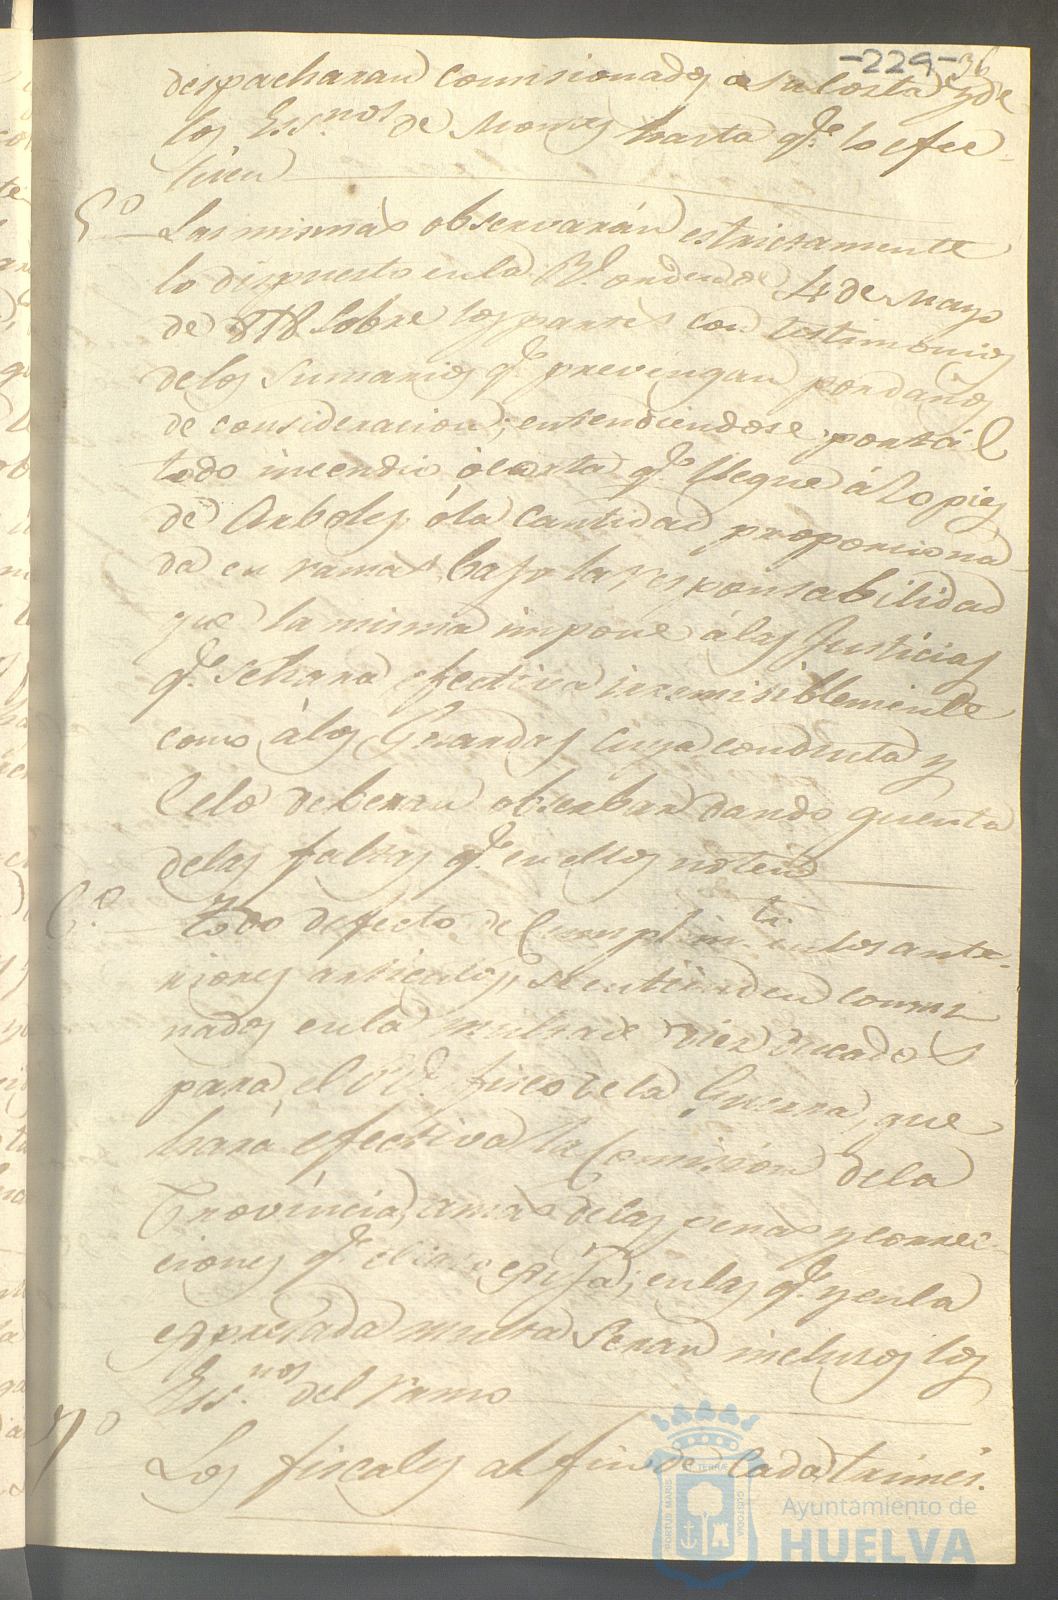 -229- 36
despacharan comisionados a su costa y de
los Ess.nos de Montes hasta q.e lo efec-
túen
5.o Las mismas observarán estrictamente
lo dispuesto en la R.l orden de 4 de Mayo
de 818 sobre los partes con testimonios
de los sumarios q.e prevengan por daños
de consideracion, entendiendose por tál
todo incendio ò corta q.e llegue á 20 pies
de Arboles, ó la cantidad proporciona-
da en ramas, bajo la responsabilidad
que la misma impone á las Justicias
q.e se hará efectiva irremisiblemente
como á los Guardas cuya conducta y
Celo deberan observar dando quenta
de las faltas q.e en ellos noten
6.o Todo defecto de Cumplim.to en los ante-
riores articulos, se entienden conmi
nados en la multa de diez ducados
para el R.l fisco de la Guerra, que
hará efectiva la Comision de la
Provincia, a mas de las penas y correc-
ciones q.e el caso exija; en las q.e y en la
expresada multa seran inclusos los
Ess.nos del ramo
7.o Los fiscales al fin de Cada trimes.
PORTUS MARIS
ET TERRÆ
CUSTODIA
Ayuntamiento de
HUELVA